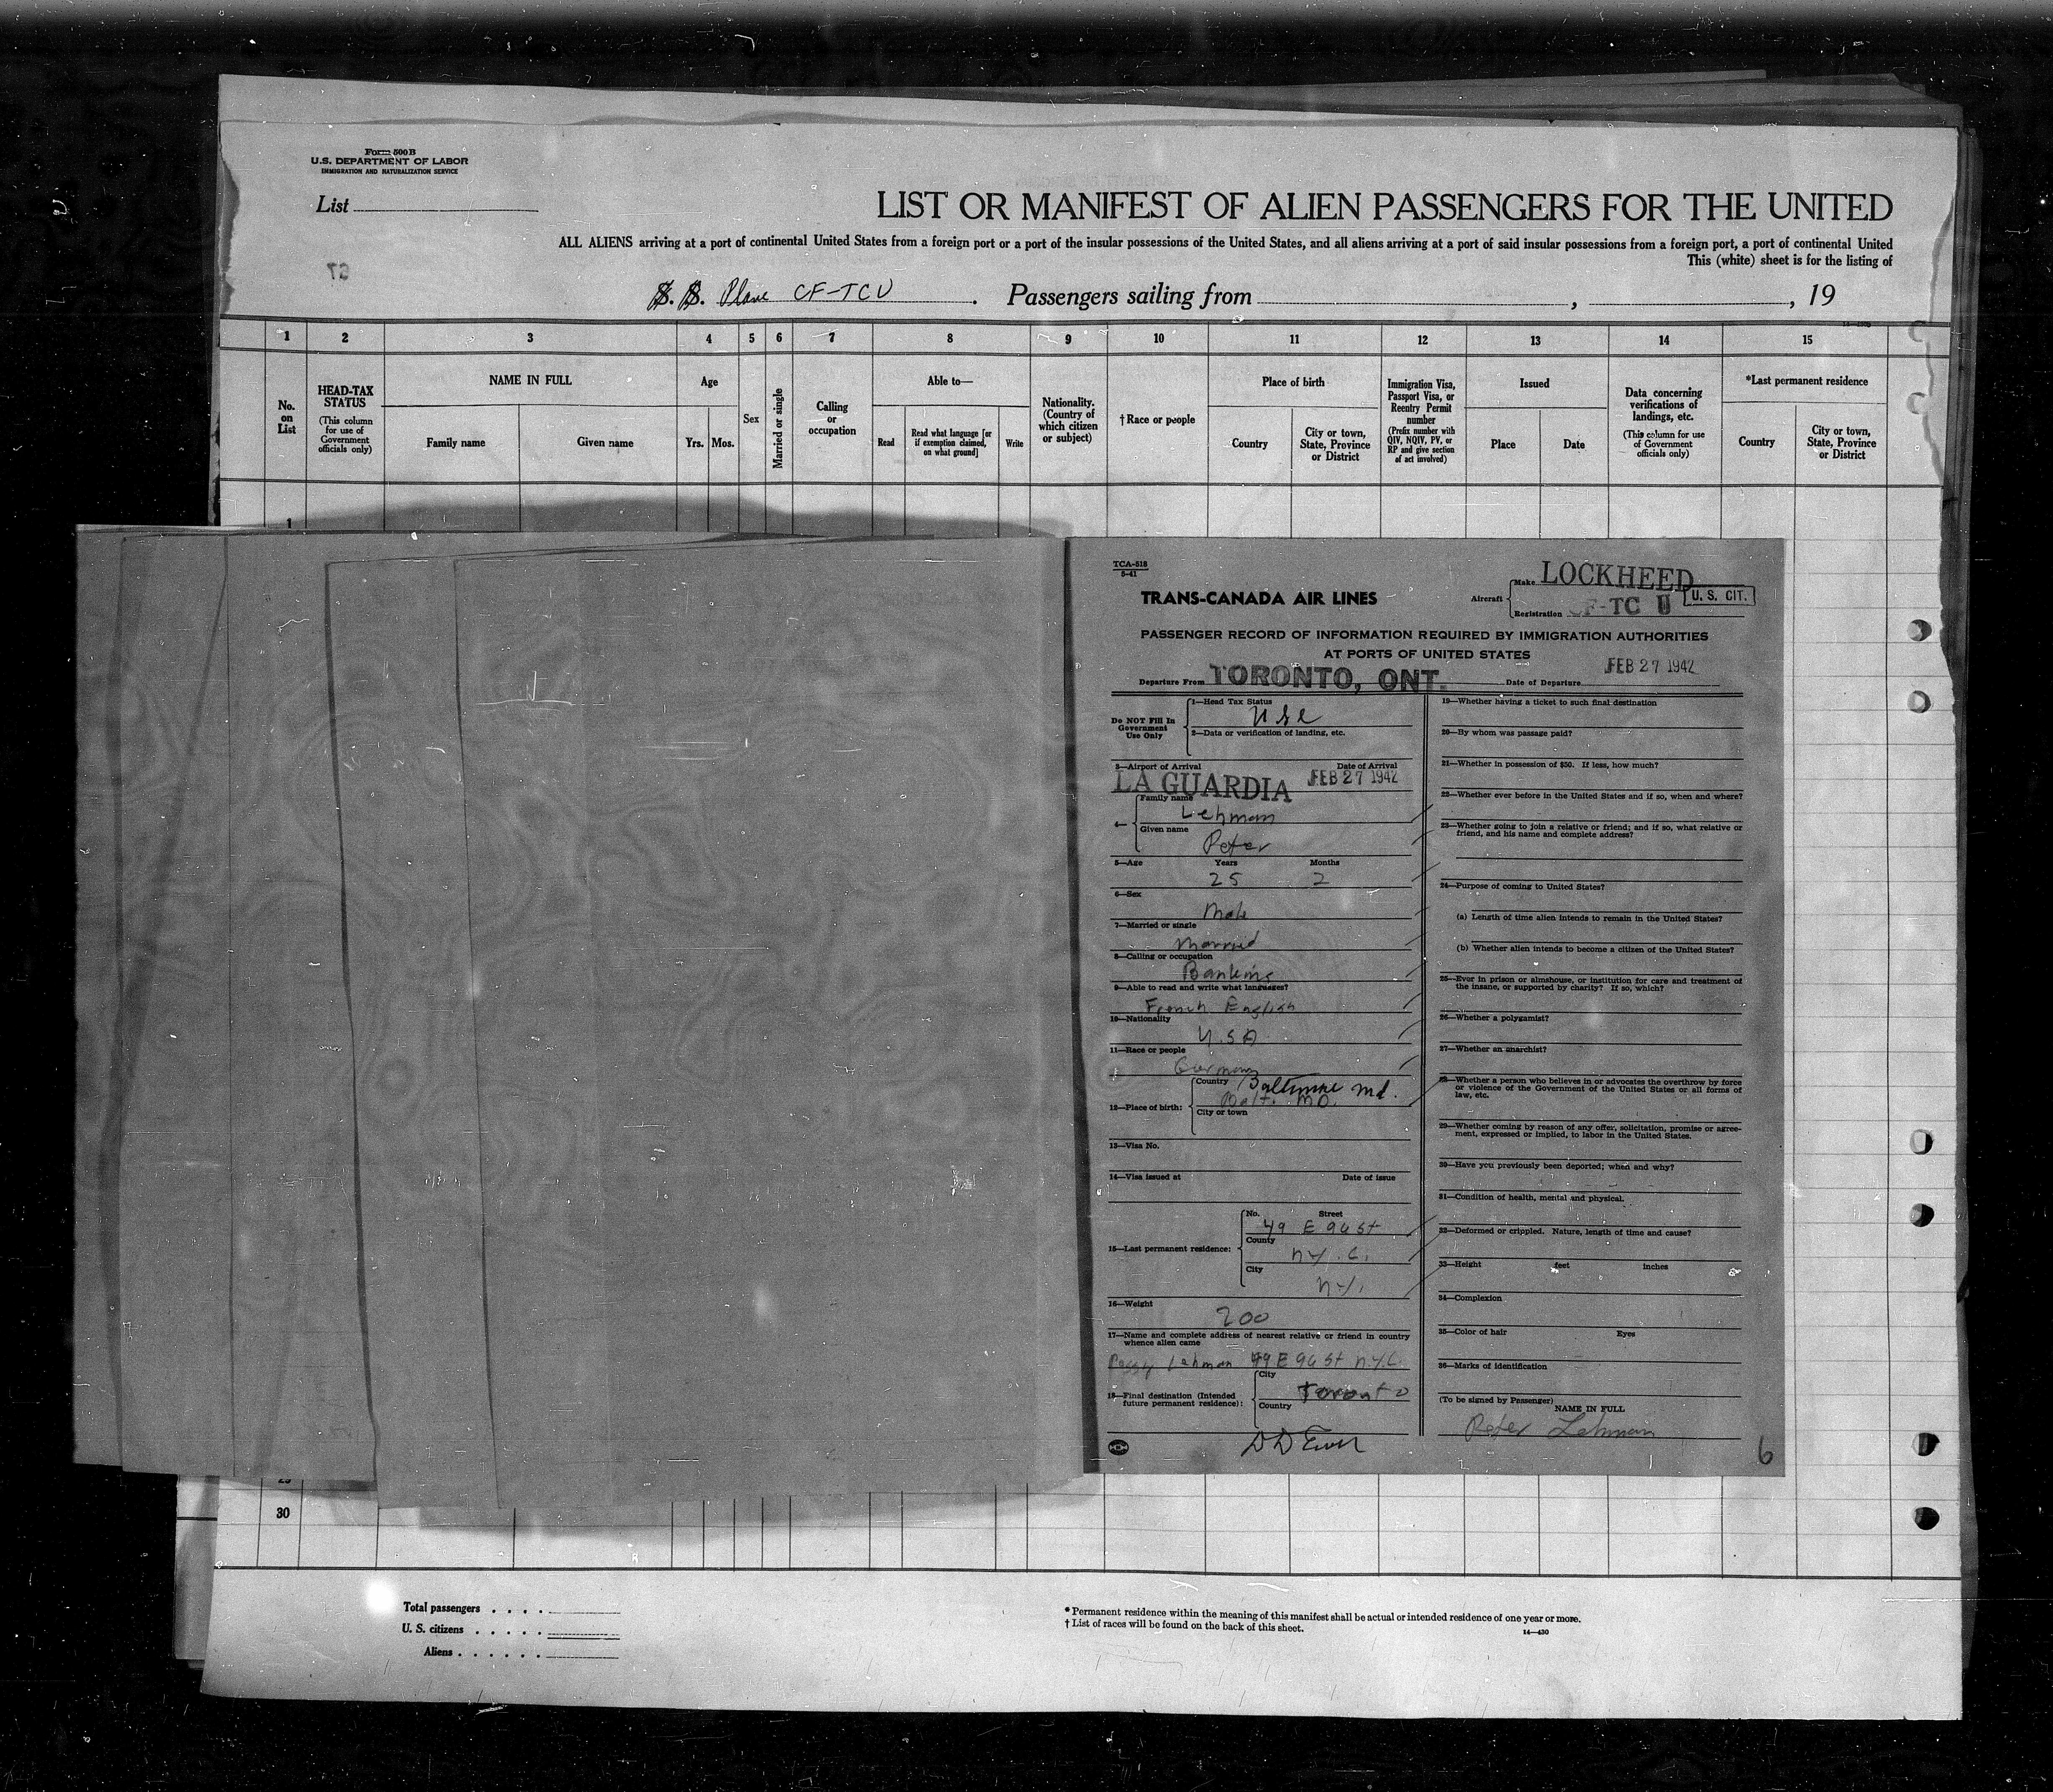 Form 500 B
U.S. DEPARTMENT OF LABOR
IMMIGRATION AND NATURALIZATION SERVICE
List
LIST OR MANIFEST OF ALIEN PASSENGERS FOR THE UNITED
ALL ALIENS arriving at a port of continental United States from a foreign port or a port of the insular possessions of the United States, and all aliens arriving at a port of said insular possessions from a foreign port, a port of continental United
This (white) sheet is for the listing of
S. S. Plane CF-TCU . Passengers sailing from , , 19
1 2 3 4 5 6 7 8 9 10 11 12 13 14 15
No. on List
HEAD-TAX STATUS
(This column for use of Government officials only)
NAME IN FULL
Family name
Given name
Age
Yrs. Mos.
Sex
Married or single
Calling or occupation
Able to—
Read
Read what language [or if exemption claimed, on what ground]
Write
Nationality. (Country of which citizen or subject)
† Race or people
Place of birth
Country
City or town, State, Province or District
Immigration Visa, Passport Visa, or Reentry Permit number
(Prefix number with QIV, NQIV, PV, or RP and give section of act involved)
Issued
Place
Date
Data concerning verifications of landings, etc.
(This column for use of Government officials only)
*Last permanent residence
Country
City or town, State, Province or District
1
TCA-518
5-41
TRANS-CANADA AIR LINES
Aircraft
Make LOCKHEED
Registration CF-TC U
U. S. CIT.
PASSENGER RECORD OF INFORMATION REQUIRED BY IMMIGRATION AUTHORITIES
AT PORTS OF UNITED STATES
Departure From TORONTO, ONT. Date of Departure FEB 27 1942
Do NOT Fill In Government Use Only
1—Head Tax Status
USC
2—Data or verification of landing, etc.
3—Airport of Arrival Date of Arrival
LA GUARDIA FEB 27 1942
4—
Family name
Lehman
Given name
Peter
5—Age Years Months
25 2
6—Sex
Male
7—Married or single
Married
8—Calling or occupation
Banking
9—Able to read and write what languages?
French English
10—Nationality
U.S.A
11—Race or people
German
12—Place of birth:
Country
Baltimore Md.
Balt. MD.
City or town
13—Visa No.
14—Visa issued at Date of issue
15—Last permanent residence:
No. Street
49 E 96 St
County
N.Y.C.
City
N.Y.
16—Weight
200
17—Name and complete address of nearest relative or friend in country
whence alien came
Peggy Lehman 49 E 96 St N.Y.C.
18—Final destination (Intended
future permanent residence):
City
Toronto
Country
19—Whether having a ticket to such final destination
20—By whom was passage paid?
21—Whether in possession of $50. If less, how much?
22—Whether ever before in the United States and if so, when and where?
23—Whether going to join a relative or friend; and if so, what relative or
friend, and his name and complete address?
24—Purpose of coming to United States?
(a) Length of time alien intends to remain in the United States?
(b) Whether alien intends to become a citizen of the United States?
25—Ever in prison or almshouse, or institution for care and treatment of
the insane, or supported by charity? If so, which?
26—Whether a polygamist?
27—Whether an anarchist?
28—Whether a person who believes in or advocates the overthrow by force
or violence of the Government of the United States or all forms of
law, etc.
29—Whether coming by reason of any offer, solicitation, promise or agree-
ment, expressed or implied, to labor in the United States.
30—Have you previously been deported; when and why?
31—Condition of health, mental and physical.
32—Deformed or crippled. Nature, length of time and cause?
33—Height feet inches
34—Complexion
35—Color of hair Eyes
36—Marks of identification
(To be signed by Passenger)
NAME IN FULL
Peter Lehman
6
30
Total passengers
U. S. citizens
Aliens
* Permanent residence within the meaning of this manifest shall be actual or intended residence of one year or more.
† List of races will be found on the back of this sheet.
14—430